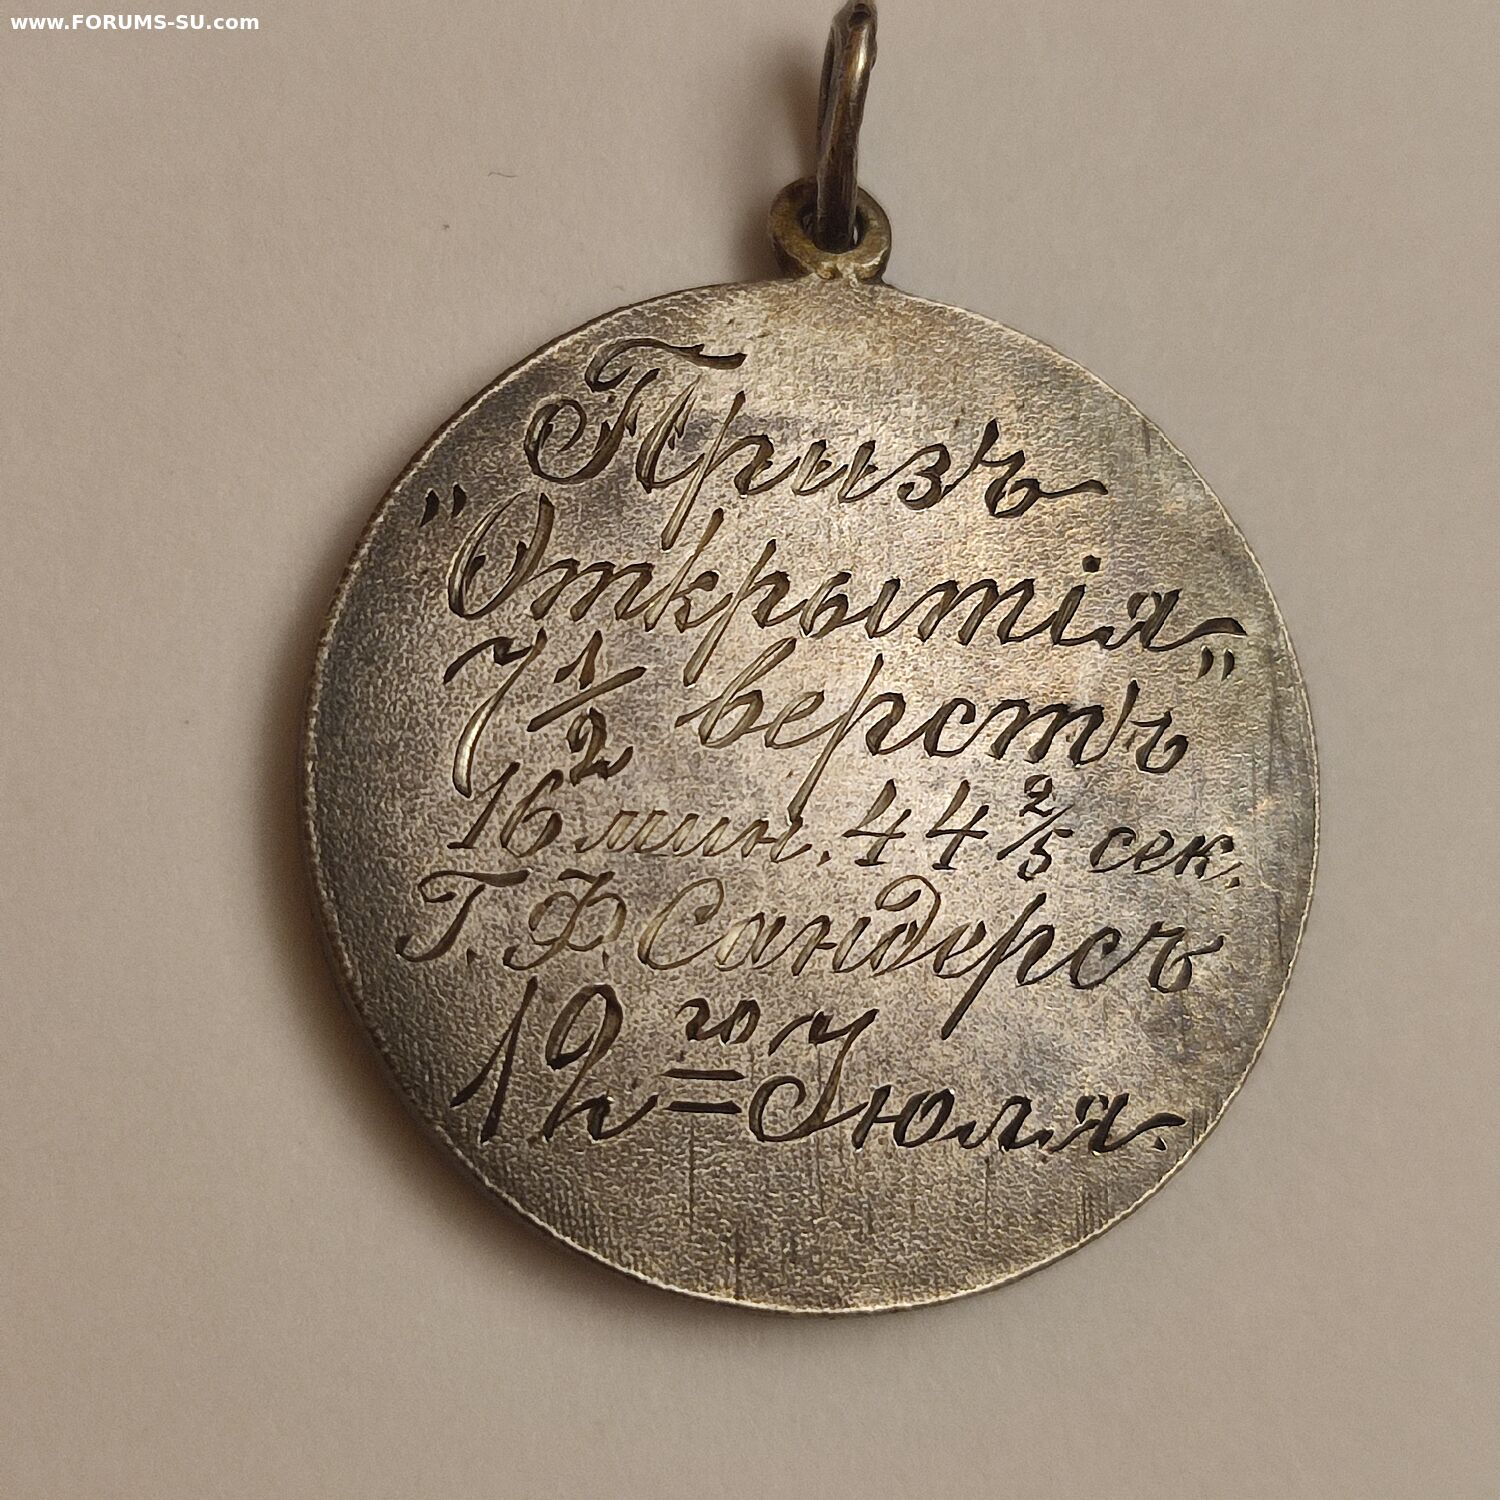 www.FORUMS-SU.com
Призъ
"Открытiя"
7 1/2 верстъ
16 мин. 44 2/5 сек.
Г. Ф. Сандерсъ
12го Iюля.